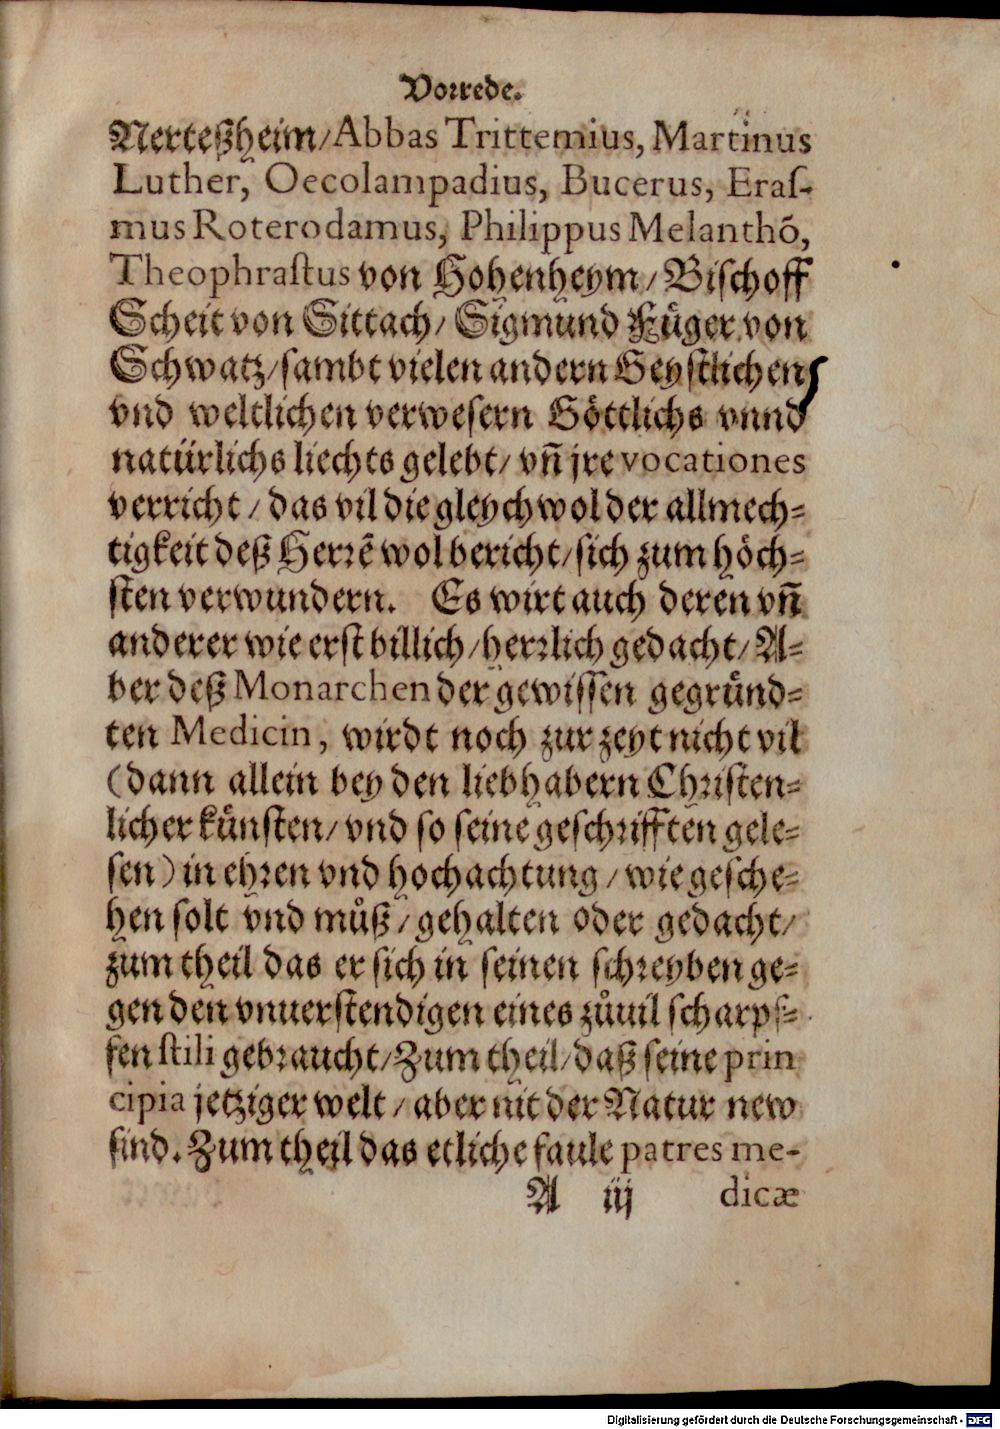 Vorrede.
Nerteßheim/ Abbas Trittemius, Martinus
Luther, Oecolampadius, Bucerus, Eraſ-
mus Roterodamus, Philippus Melanthõ,
Theophraſtus von Hohenheym/ Biſchoff
Scheit von Sittach/ Sigmund Füger von
Schwatz/ ſambt vielen andern Geyſtlichen
vnd weltlichen verweſern Göttlichs vnnd
natürlichs liechts gelebt/ vñ jre vocationes
verricht/ das vil die gleychwol der allmech-
tigkeit deß Herrẽ wol bericht/ ſich zum höch-
ſten verwundern. Es wirt auch deren vñ
anderer wie erſt billich/ herrlich gedacht/ A-
ber deß Monarchen der gewiſſen gegründ-
ten Medicin, wirdt noch zur zeyt nicht vil
(dann allein bey den liebhabern Chriſten-
licher künſten/ vnd ſo ſeine geſchrifften gele-
ſen) in ehren vnd hochachtung/ wie geſche-
hen ſolt vnd můß/ gehalten oder gedacht/
zum theil das er ſich in ſeinen ſchreyben ge-
gen den vnuerſtendigen eines zůuil ſcharpf-
fen ſtili gebraucht/ Zum theil/ daß ſeine prin
cipia jetziger welt/ aber nit der Natur new
ſind. Zum theil das etliche faule patres me-
A iij dicæ
Digitalisierung gefördert durch die Deutsche Forschungsgemeinschaft - DFG